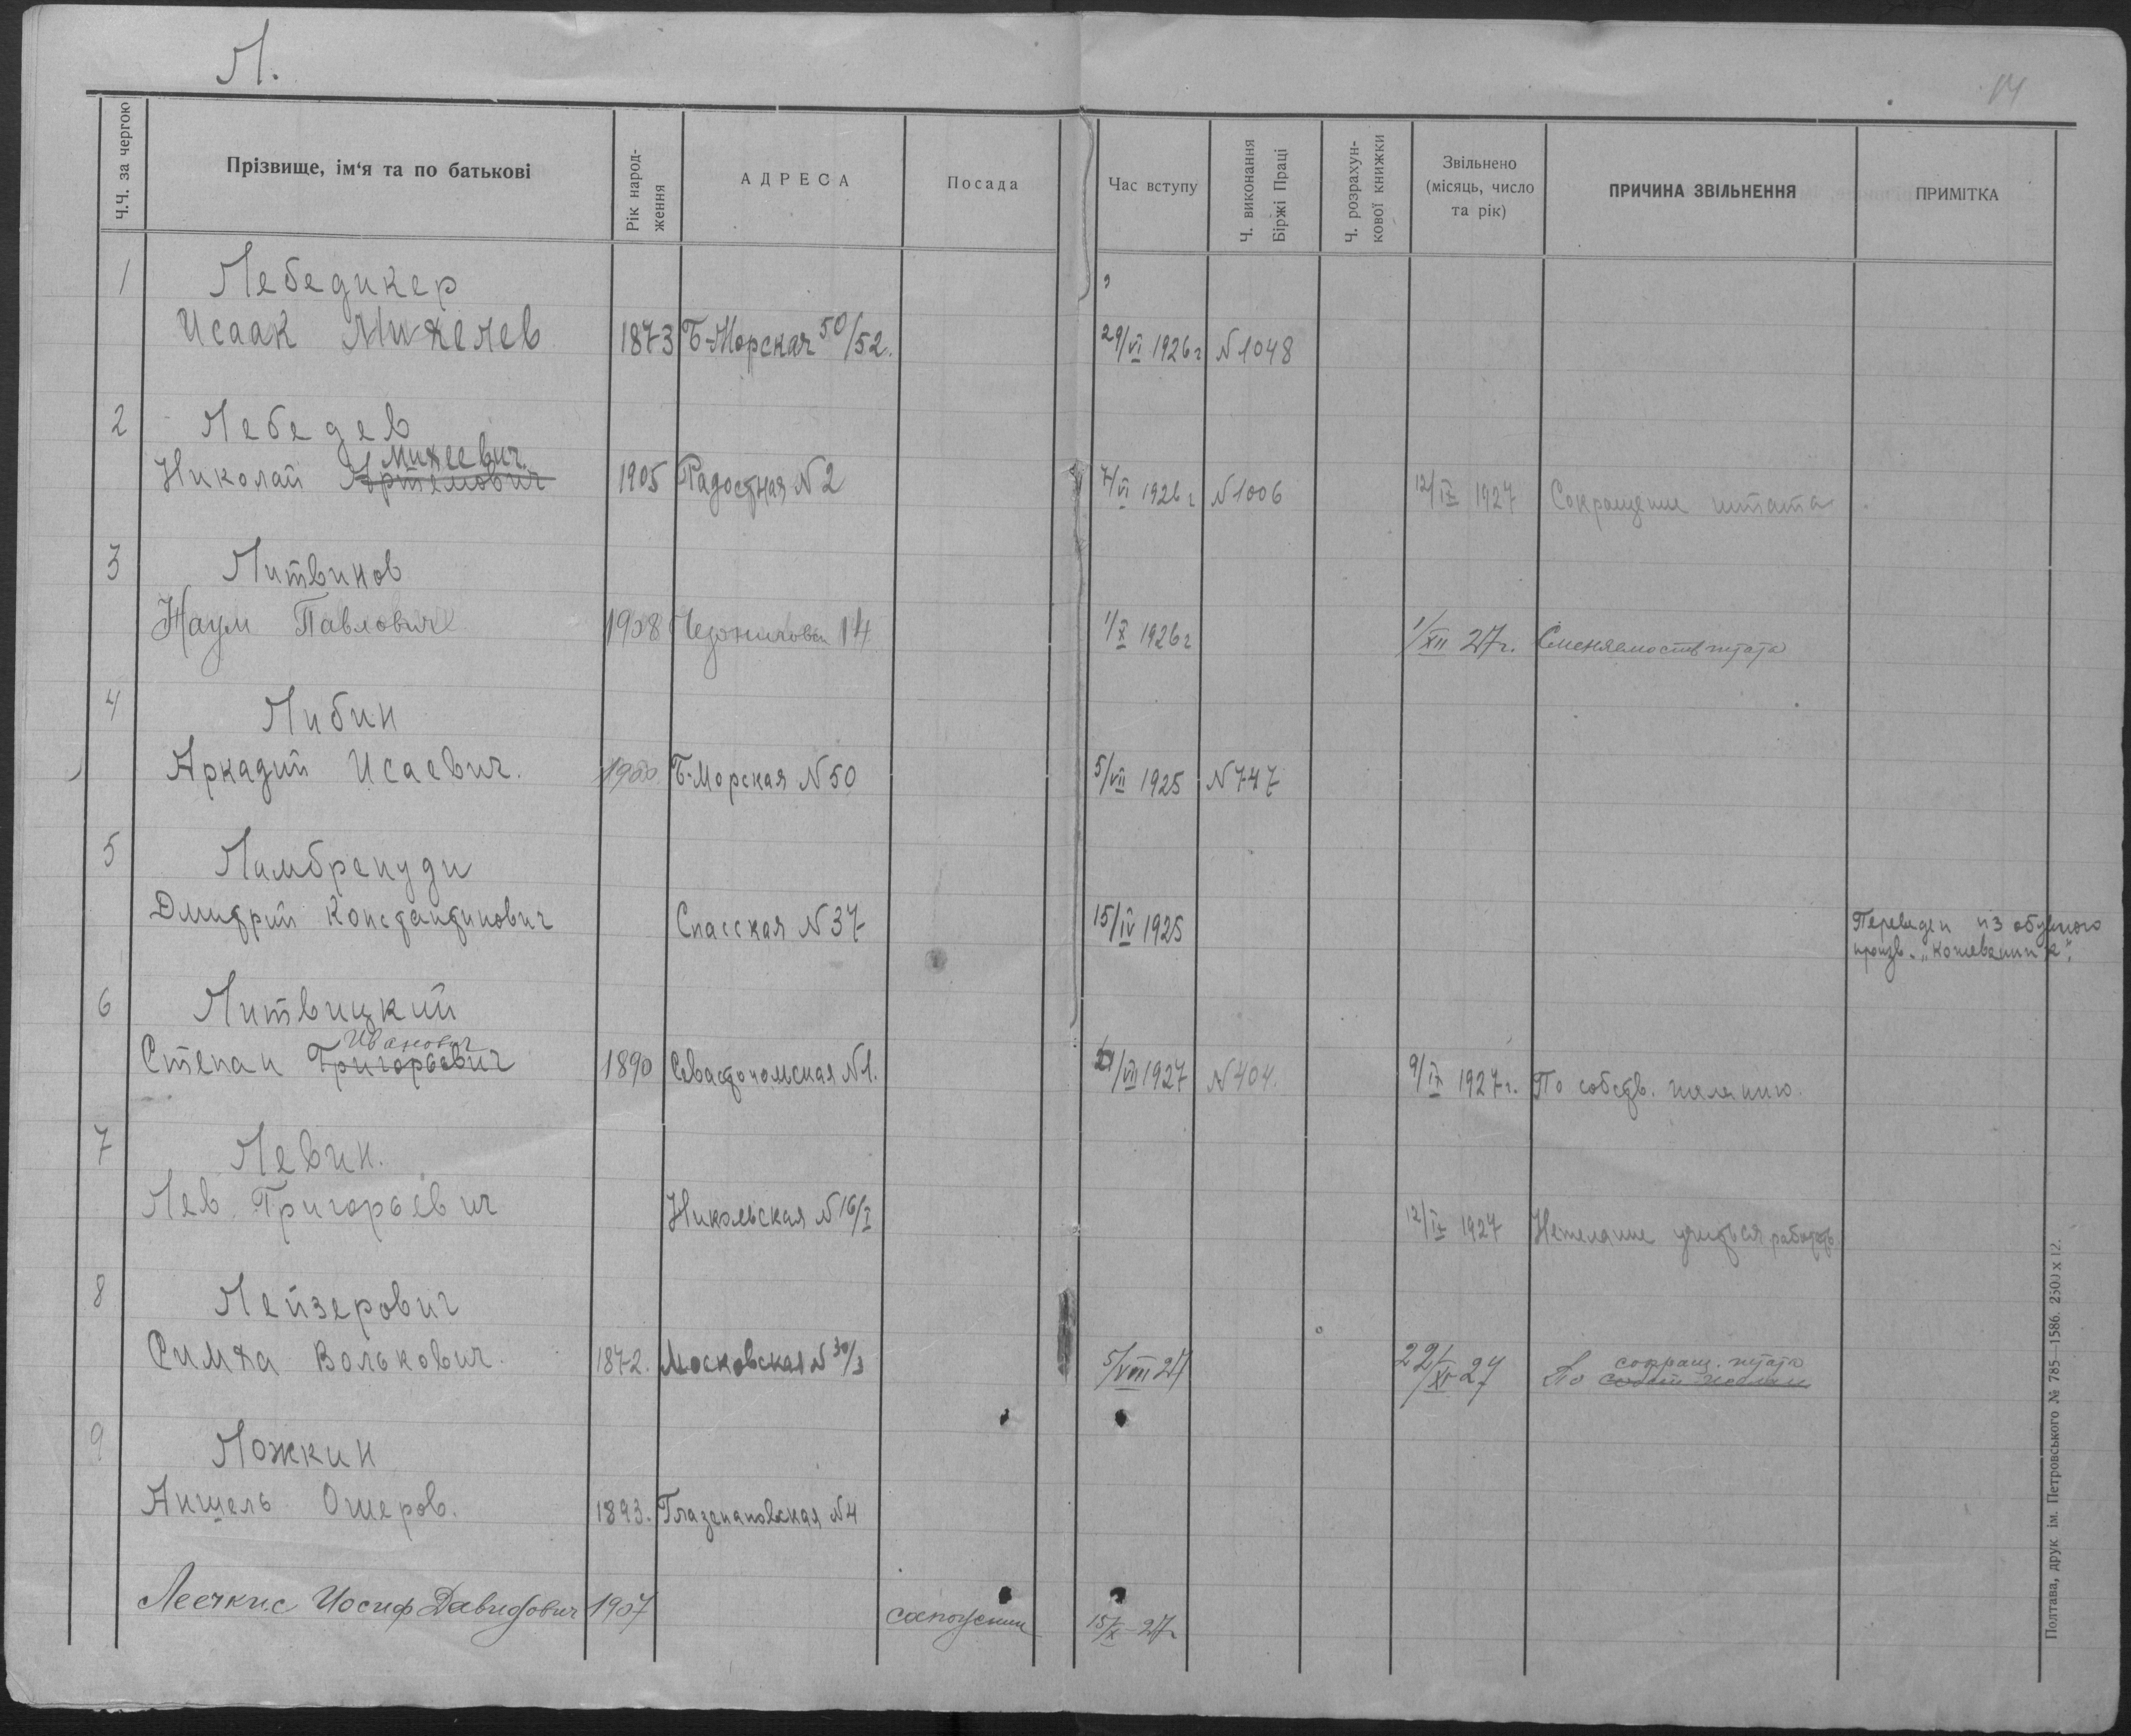 Л.
14
Ч.Ч. за чергою
Прізвище, ім‘я та по батькові
Рік народ-
ження
АДРЕСА
Посада
Час вступу
Ч. виконання
Біржі Праці
Ч. розрахун-
кової книжки
Звільнено
(місяць, число
та рік)
ПРИЧИНА ЗВІЛЬНЕННЯ
ПРИМІТКА
1 Лебедикер
Исаак Михелев 1873 Б-Морская 50/52. 29/VI 1926г N1048
2 Лебедев
Михеевич
Николай Артемович 1905 Радостная N2 7/VI 1926г N1006 12/IX 1927 Сокращение штата
3 Литвинов
Наум Павлович 1908 14 1/X 1926г 1/XII 27г. Сменяемость штата
4 Либин
Аркадий Исаевич. 1900 Б-Морская N50 5/VII 1925 N747
5 Ламбрепуди
Дмитрий Константинович Спасская N37 15/IV 1925 Переведен из обувного
произв. „Кожевенник".
6 Литвицкий
Иванович
Степан Григорьевич 1890 Севастопольская N1. 21/VII 1927 N404. 9/IX 1927г. По собств. желанию.
7 Левин.
Лев Григорьевич Никольская N16/I 12/IX 1927 Нежелание учиться работать.
8 Лейзерович
сокращ. штата
Симха Волькович. 1872. Московская N30/3 5/VIII 27 22/XI-27 По собст желан
9 Ложкин
Аншель Ошеров. 1893. Глазенаповская N4
Леечкис Иосиф Давидович 1907 сапожник 15/X-27г
Полтава, друк ім. Петровського № 785—1586. 2500 x 12.